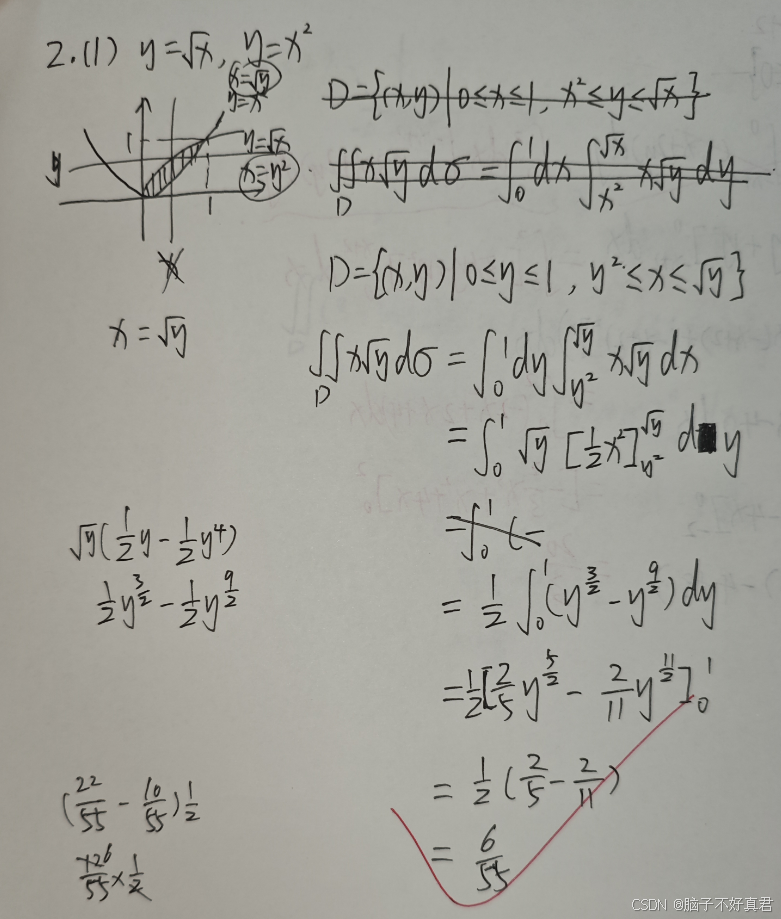 2.(1) y=√x, y=x²
x=√y
y=x²
1
y=√x
y
x=y²
1
x
x=√y
D={(x,y)|0≤x≤1, x²≤y≤√x}
∬_D x√y dσ = ∫₀¹dx∫_{x²}^{√x} x√y dy
D={(x,y)|0≤y≤1, y²≤x≤√y}
∬_D x√y dσ = ∫₀¹dy∫_{y²}^{√y} x√y dx
= ∫₀¹ √y [½x²]_{y²}^{√y} d y
= ∫₀¹ (=
√y(½y-½y⁴)
½y^{3/2}-½y^{9/2}
= ½ ∫₀¹(y^{3/2}-y^{9/2})dy
= ½[2/5 y^{5/2} - 2/11 y^{11/2}]₀¹
= ½(2/5-2/11)
= 6/55
(22/55 - 10/55)½
CSDN @脑子不好真君